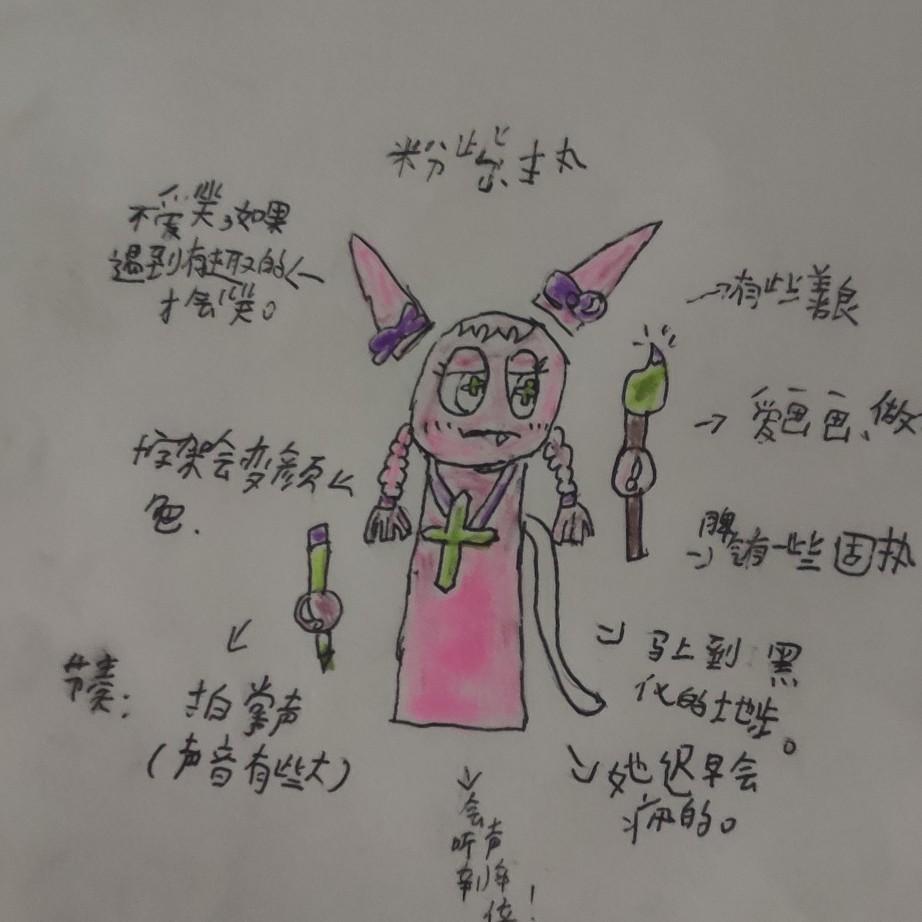 粉紫主丸
不爱笑,如果
遇到有趣的
才会笑。
→有些善良
→ 爱画画、做
十字架会变颜
色.
脾
会有一些固执
马上到 黑
化的地步。
节奏:
拍掌声
(声音有些大)
她迟早会
疯的。
会
听声
到
位!